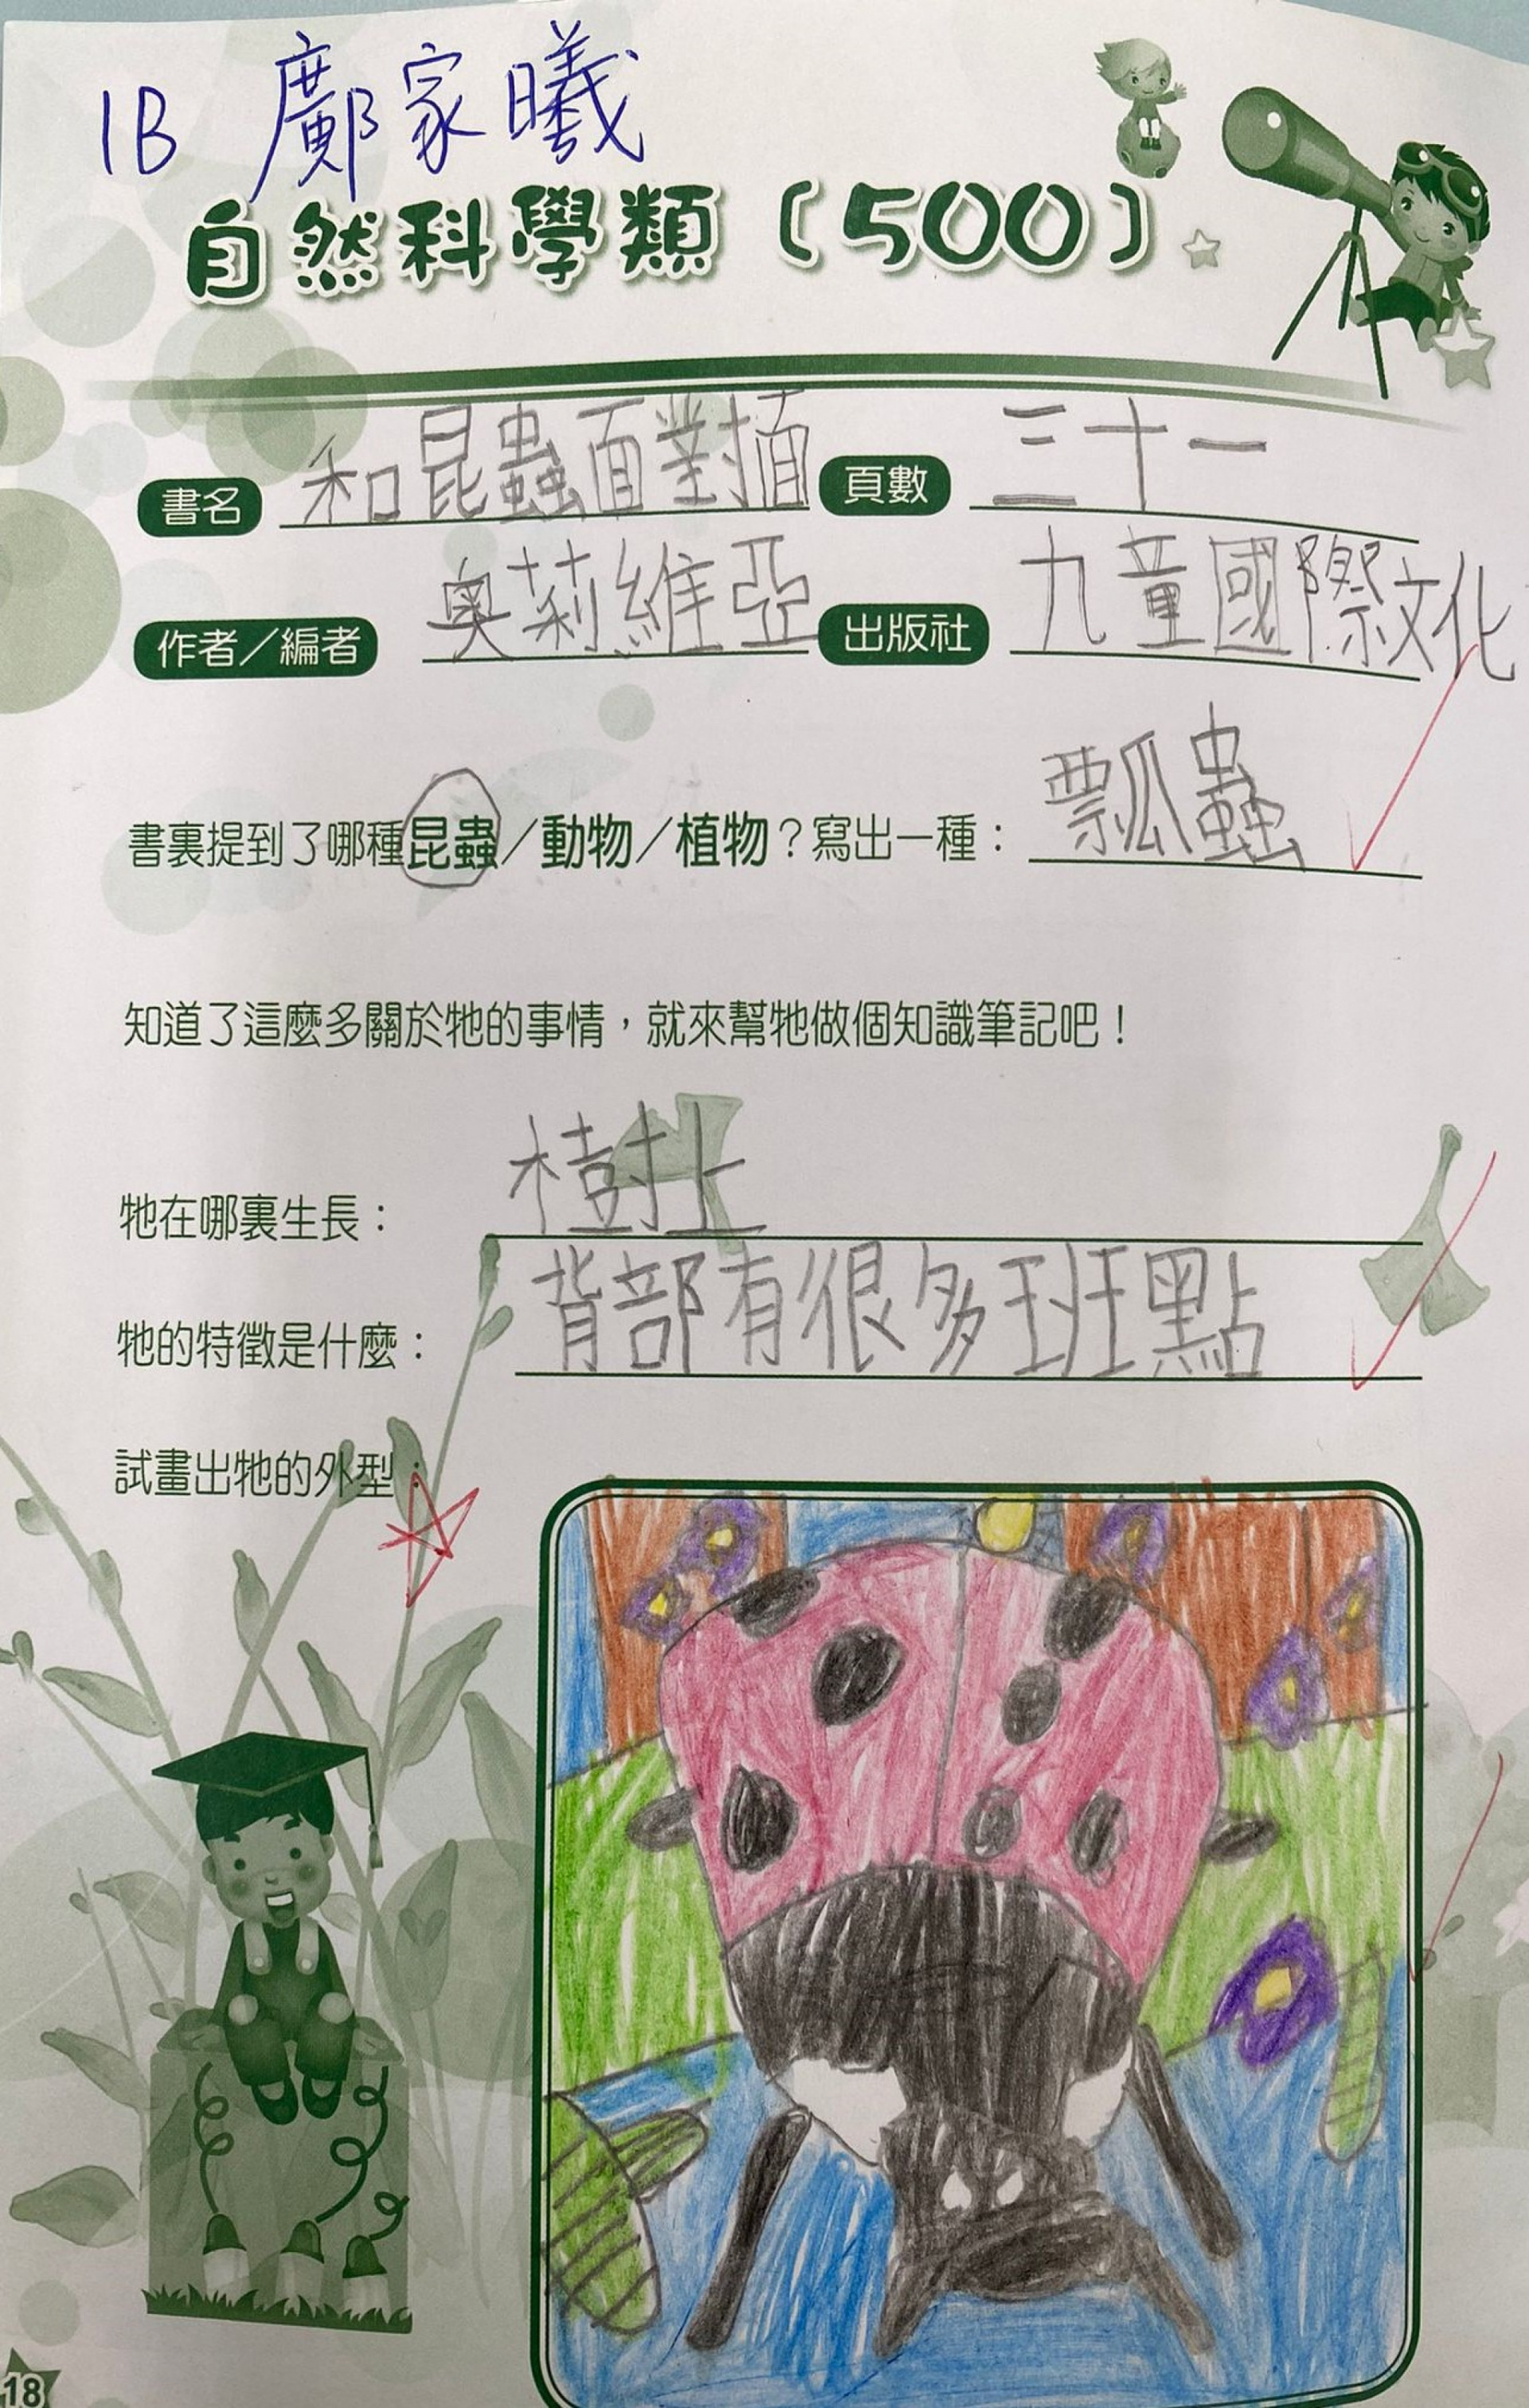 1B 鄺家曦
自然科學類（500）
書名 和昆蟲面對面 頁數 三十一
作者／編者 奧莉維亞 出版社 九童國際文化
書裏提到了哪種昆蟲／動物／植物？寫出一種： 瓢瓜蟲
知道了這麼多關於牠的事情，就來幫牠做個知識筆記吧！
牠在哪裏生長： 樹上
牠的特徵是什麼： 背部有很多班點
試畫出牠的外型：
18